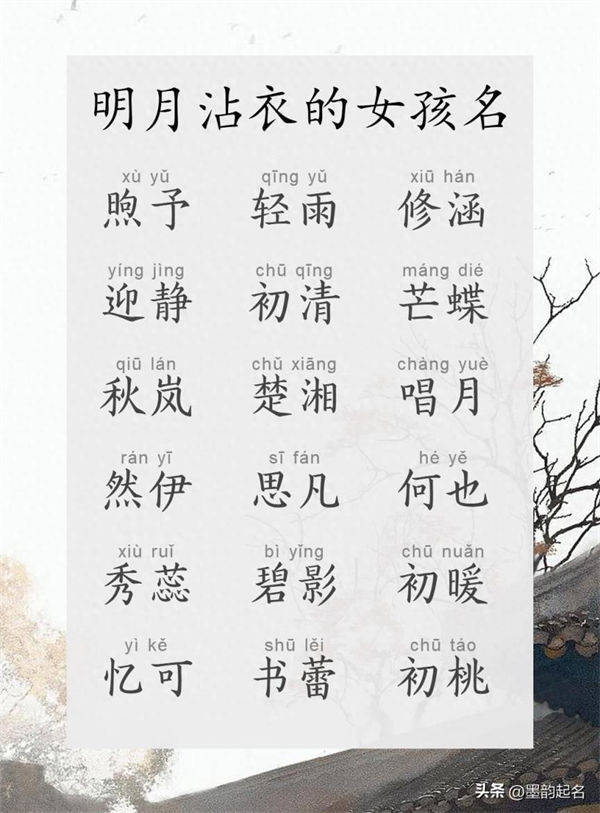 明月沾衣的女孩名
xù yǔ qīng yǔ xiū hán
煦予 轻雨 修涵
yíng jìng chū qīng máng dié
迎静 初清 芒蝶
qiū lán chǔ xiāng chàng yuè
秋岚 楚湘 唱月
rán yī sī fán hé yě
然伊 思凡 何也
xiù ruǐ bì yǐng chū nuǎn
秀蕊 碧影 初暖
yì kě shū lěi chū táo
忆可 书蕾 初桃
头条 @墨韵起名